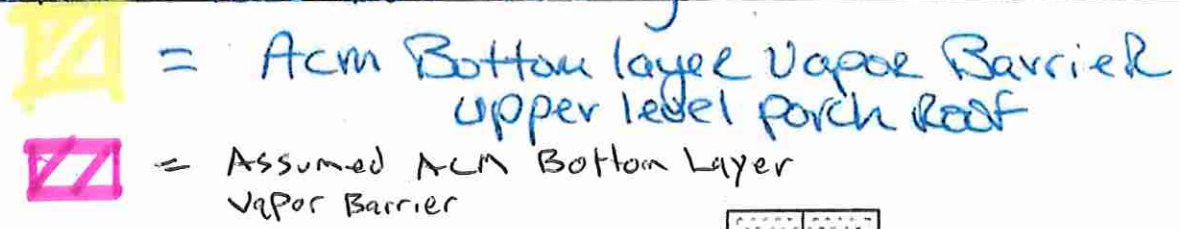 = Acm Bottom layer Vapor Barrier
upper level porch Roof
= Assumed ACM Bottom Layer
Vapor Barrier